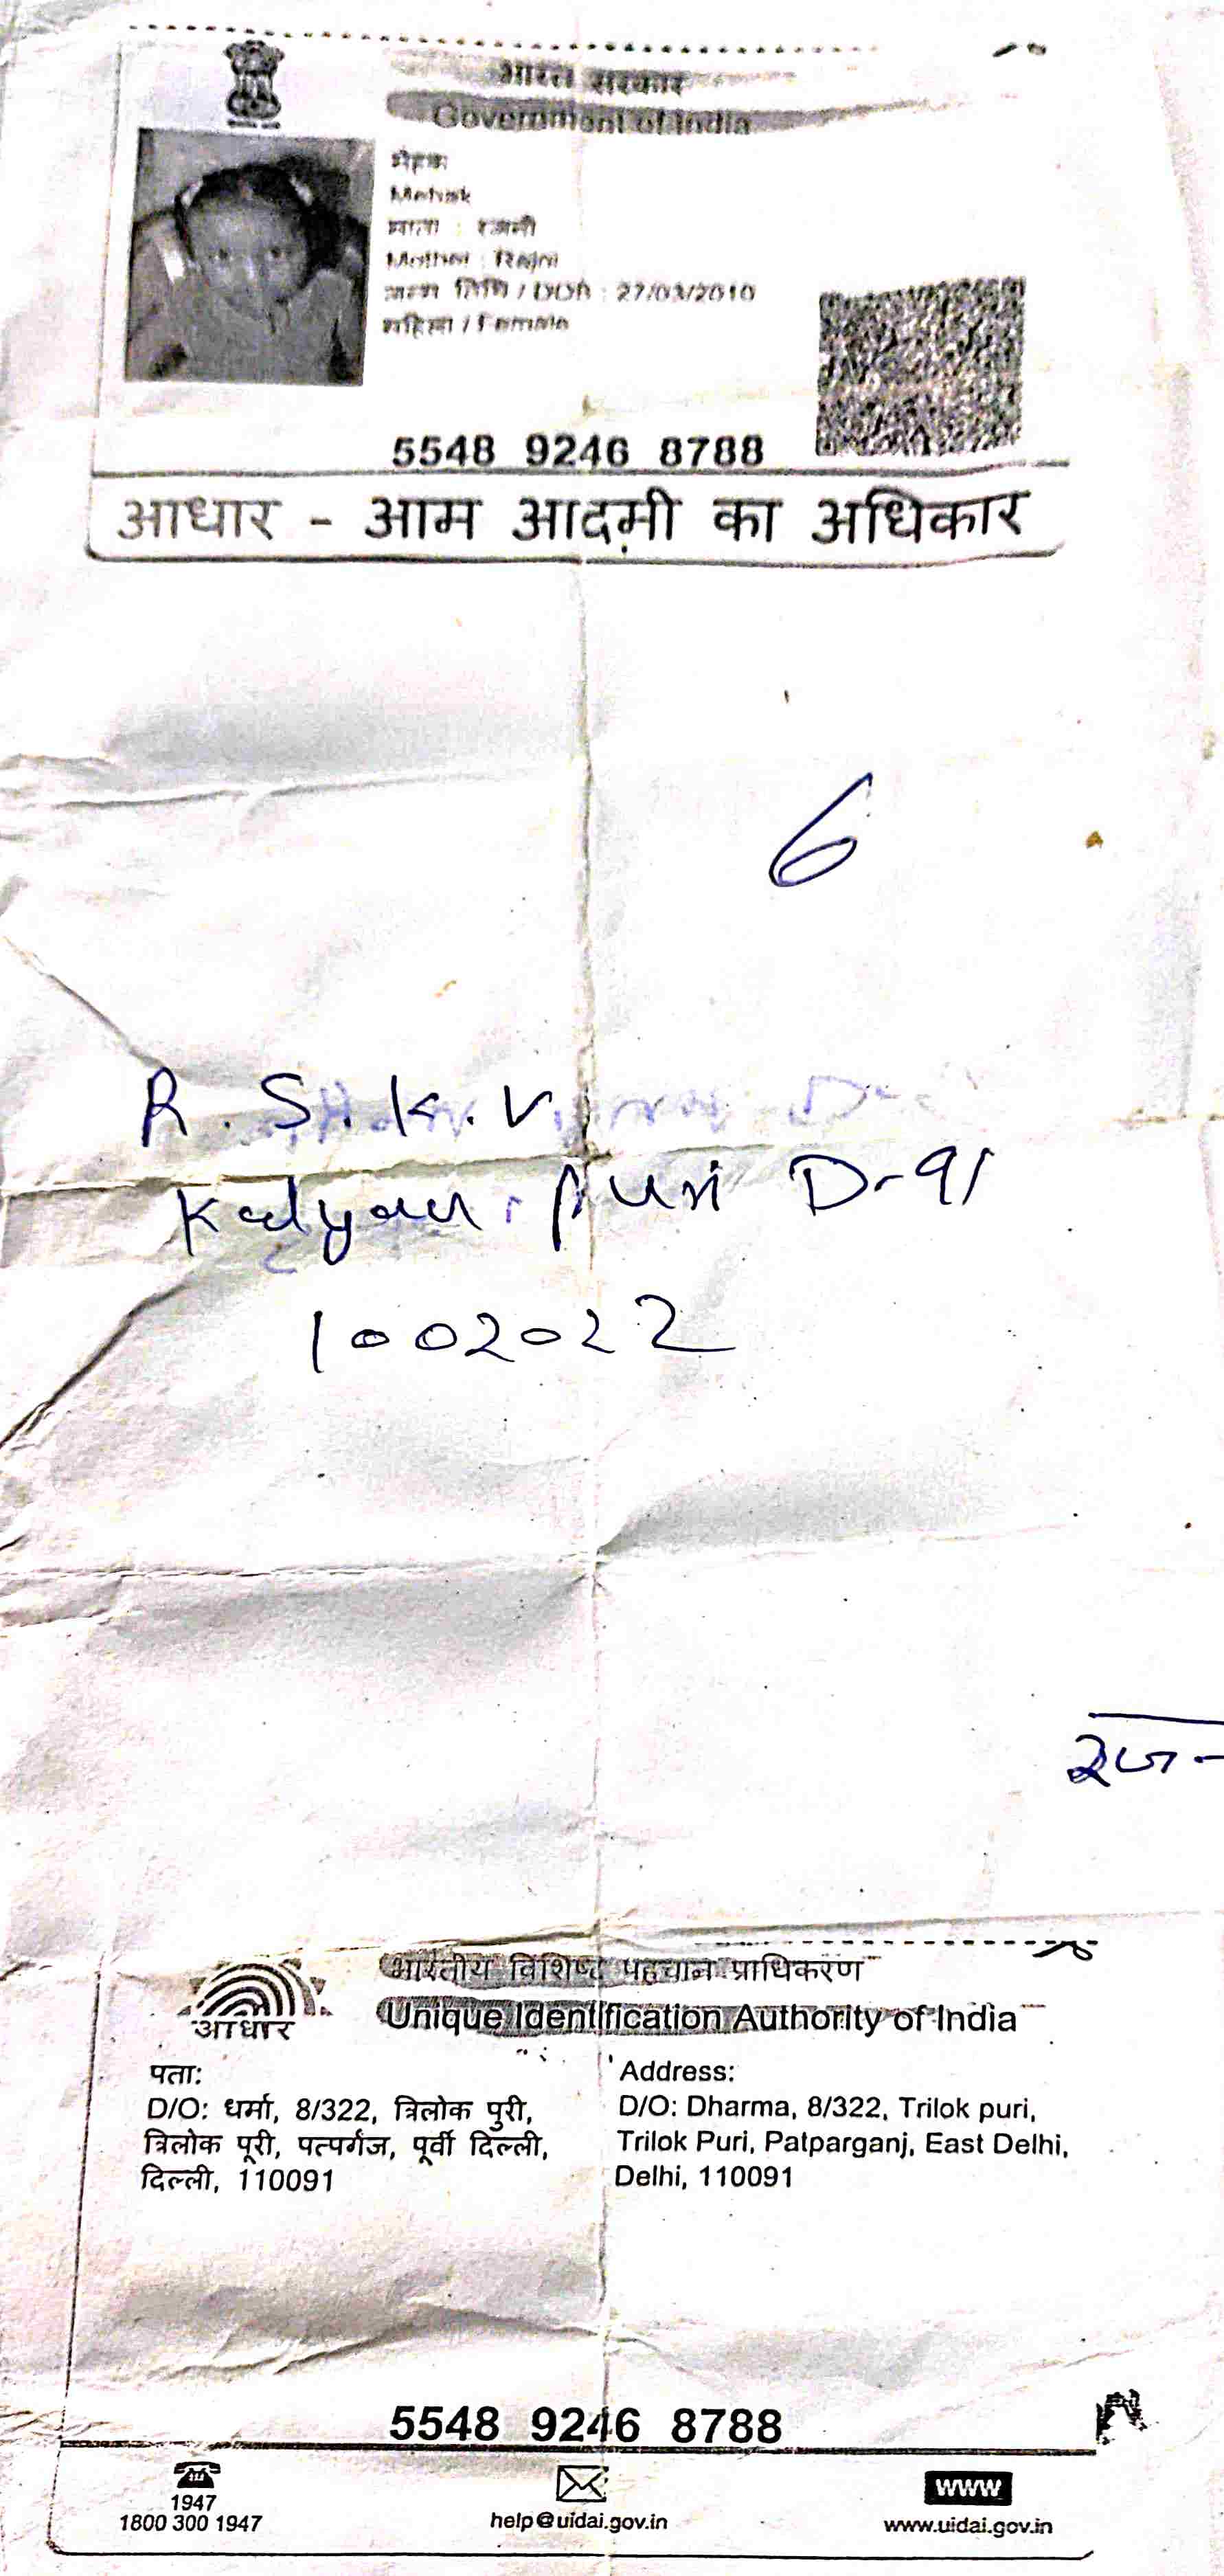 भारत सरकार
Government of India
मेहक
Mehak
माता : रजनी
Mother : Rajni
जन्म तिथि / DOB : 27/03/2010
महिला / Female
5548 9246 8788
आधार - आम आदमी का अधिकार
6
R. S. K. V.
Kalyan puri D-91
1002022
भारतीय विशिष्ट पहचान प्राधिकरण
Unique Identification Authority of India
आधार
पता:
D/O: धर्मा, 8/322, त्रिलोक पुरी,
त्रिलोक पूरी, पत्पर्गंज, पूर्वी दिल्ली,
दिल्ली, 110091
Address:
D/O: Dharma, 8/322, Trilok puri,
Trilok Puri, Patparganj, East Delhi,
Delhi, 110091
5548 9246 8788
1947
1800 300 1947
help@uidai.gov.in
WWW
www.uidai.gov.in